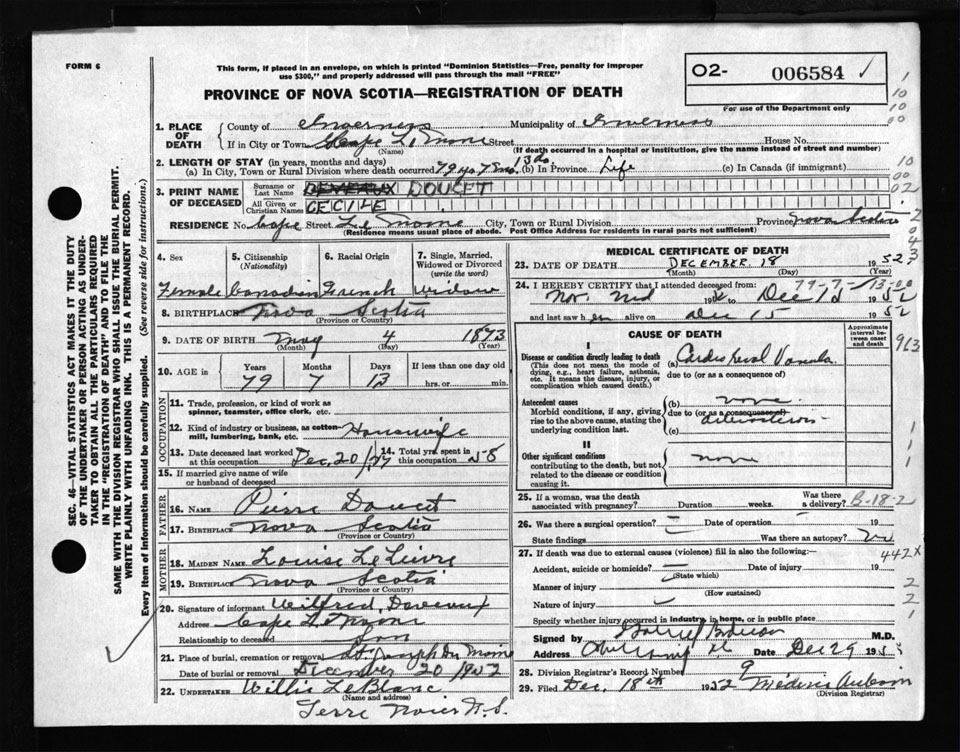 FORM 6
This form, if placed in an envelope, on which is printed "Dominion Statistics—Free, penalty for improper
use $300," and properly addressed will pass through the mail "FREE"
PROVINCE OF NOVA SCOTIA—REGISTRATION OF DEATH
O2- 006584 ✓
For use of the Department only
1. PLACE OF DEATH
County of Inverness Municipality of Inverness
If in City or Town Cape Le Moine Street House No.
(Name) (If death occurred in a hospital or institution, give the name instead of street and number)
2. LENGTH OF STAY (in years, months and days)
(a) In City, Town or Rural Division where death occurred 79 yrs 7 mo. 13 ds (b) In Province Life (c) In Canada (if immigrant)
3. PRINT NAME OF DECEASED
Surname or Last Name DEVEAUX DOUCET
All Given or Christian Names CECILE
RESIDENCE No. Cape Street Le Moine City, Town or Rural Division Province Nova Scotia
(Residence means usual place of abode. Post Office Address for residents in rural parts not sufficient)
4. Sex
5. Citizenship (Nationality)
6. Racial Origin
7. Single, Married, Widowed or Divorced (write the word)
Female Canadian French Widow
8. BIRTHPLACE Nova Scotia
(Province or Country)
9. DATE OF BIRTH May 4 1873
(Month) (Day) (Year)
10. AGE in
Years Months Days If less than one day old
79 7 13 hrs. or min.
OCCUPATION
11. Trade, profession, or kind of work as
spinner, teamster, office clerk, etc.
12. Kind of industry or business, as cotton-
mill, lumbering, bank, etc. Housewife
13. Date deceased last worked at this occupation Dec. 20/47
14. Total yrs. spent in this occupation 58
15. If married give name of wife
or husband of deceased
FATHER
16. NAME Pierre Doucet
17. BIRTHPLACE Nova Scotia
(Province or Country)
MOTHER
18. MAIDEN NAME Louise LeLievre
19. BIRTHPLACE Nova Scotia
(Province or Country)
20. Signature of informant Wilfred Deveaux
Address Cape Le Moine
Relationship to deceased Son
21. Place of burial, cremation or removal St Joseph Du Moine
Date of burial or removal December 20 1952
22. UNDERTAKER Willis LeBlanc
(Name and address)
Terre Noire N.S.
MEDICAL CERTIFICATE OF DEATH
23. DATE OF DEATH DECEMBER 18 1952
(Month) (Day) (Year)
24. I HEREBY CERTIFY that I attended deceased from:
79-7-13-00
1952 to Dec 1952
and last saw her alive on Dec 15 1952
CAUSE OF DEATH
Approximate interval between onset and death
I
Disease or condition directly leading to death
(This does not mean the mode of
dying, e.g., heart failure, asthenia,
etc. It means the disease, injury, or
complication which caused death.)
(a) Cardio Renal
due to (or as a consequence of)
Antecedent causes
Morbid conditions, if any, giving
rise to the above cause, stating the
underlying condition last.
(b) none
due to (or as a consequence of)
(c)
II
Other significant conditions
contributing to the death, but not
related to the disease or condition
causing it.
none
25. If a woman, was the death
associated with pregnancy? Duration weeks. Was there a delivery? B-18-2
26. Was there a surgical operation? Date of operation 19
State findings Was there an autopsy? no
27. If death was due to external causes (violence) fill in also the following:— 442X
Accident, suicide or homicide? Date of injury 19
(State which)
Manner of injury
(How sustained)
Nature of injury
Specify whether injury occurred in industry, in home, or in public place
Signed by M.D.
Address Date Dec 29 195
28. Division Registrar's Record Number 9
29. Filed Dec. 18th 1952
(Division Registrar)
SEC. 46—VITAL STATISTICS ACT MAKES IT THE DUTY
OF THE UNDERTAKER OR PERSON ACTING AS UNDER-
TAKER TO OBTAIN ALL THE PARTICULARS REQUIRED
IN THE "REGISTRATION OF DEATH" AND TO FILE THE
SAME WITH THE DIVISION REGISTRAR WHO SHALL ISSUE THE BURIAL PERMIT.
WRITE PLAINLY WITH UNFADING INK. THIS IS A PERMANENT RECORD.
Every item of information should be carefully supplied. (See reverse side for instructions.)